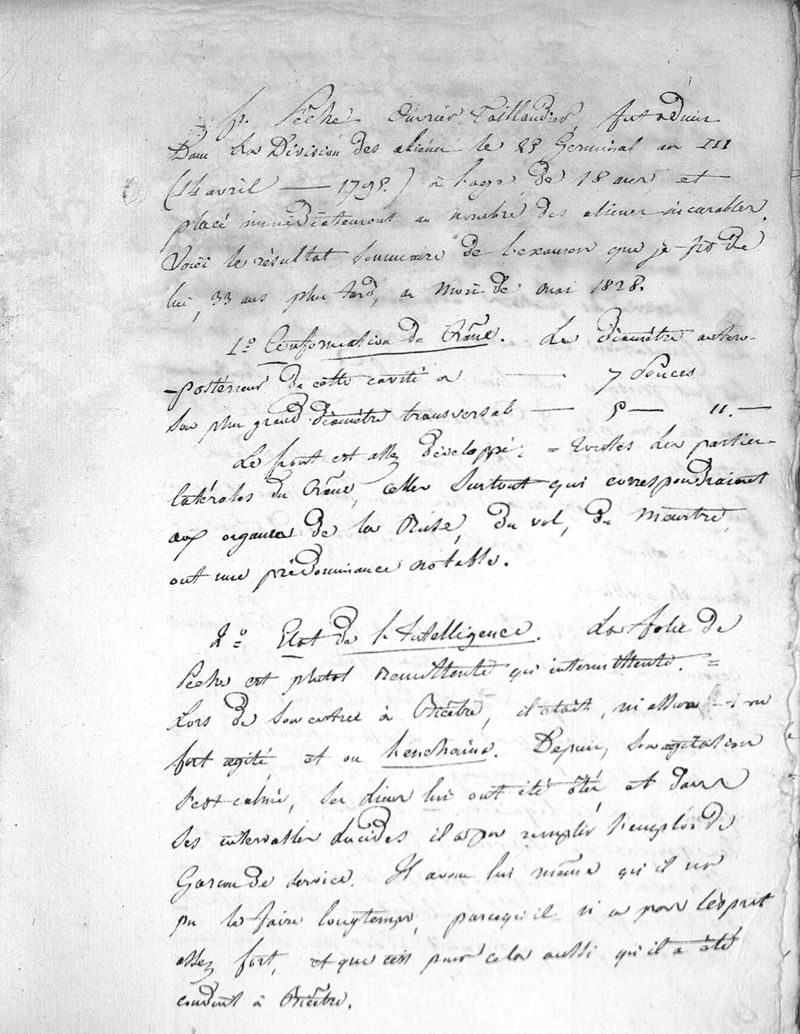 fr. Pêche Ouvrier Taillandier, fut admis
Dans La Division des aliénés le 25 Germinal an III
(14 avril — 1795.) à l'age de 18 ans, et
placé immédiatement au nombre des aliénés incurables.
Voici le résultat Sommaire de l'examen que je fis de
lui, 33 ans plus tard, au Mois de mai 1828.
1º Conformation du Crâne. Le diamètre antero-
-postérieur de cette cavité a — 7 Pouces
Son plus grand diamètre transversal — 5 — 11. —
Le front est assez développé. = Toutes les parties
latérales du Crâne, celles Surtout qui correspondraient
aux organes de la Ruse, du vol, du meurtre,
ont une prédominance notable.
2º Etat de l'Intelligence. La folie de
Pêche est plutot Remittente qu'intermittente. =
Lors de Son entrée à Bicêtre, il était,
fort agité et on l'enchaina. Depuis, Son agitation
s'est calmée, Ses liens lui ont été ôtés et dans
Ses intervalles lucides il a pu remplir l'emploi de
Garçon de service. Il avoue lui même qu'il ne
pu le faire longtemps, parcequ'il n'a pas l'esprit
assez fort, et que c'est pour cela aussi qu'il a été
conduit à Bicêtre.